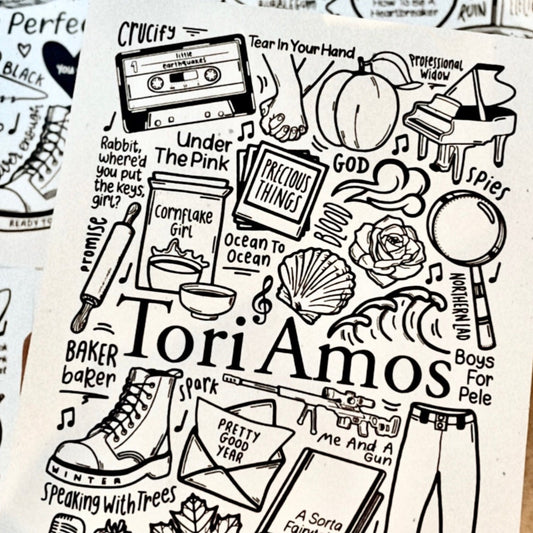 Perfe
BLACK
YOU
READY TO
HOW TO BE A
HEARTBREAKER
RUIN
CRUCIFY
1
little
earthquakes
Tear In Your Hand
Professional
Widow
Rabbit,
where'd
you put
the keys,
girl?
Under
The Pink
PRECIOUS
THINGS
GOD
SPIES
PROMISE
CORNFLAKE
GIRL
OCEAN TO
OCEAN
BLOOD
NORTHERN LAD
Tori Amos
BAKER
baker
SPARK
Boys
For
Pele
WINTER
PRETTY
GOOD
YEAR
Me And A
Gun
SPEAKING WITH TREES
A Sorta
Fairyt